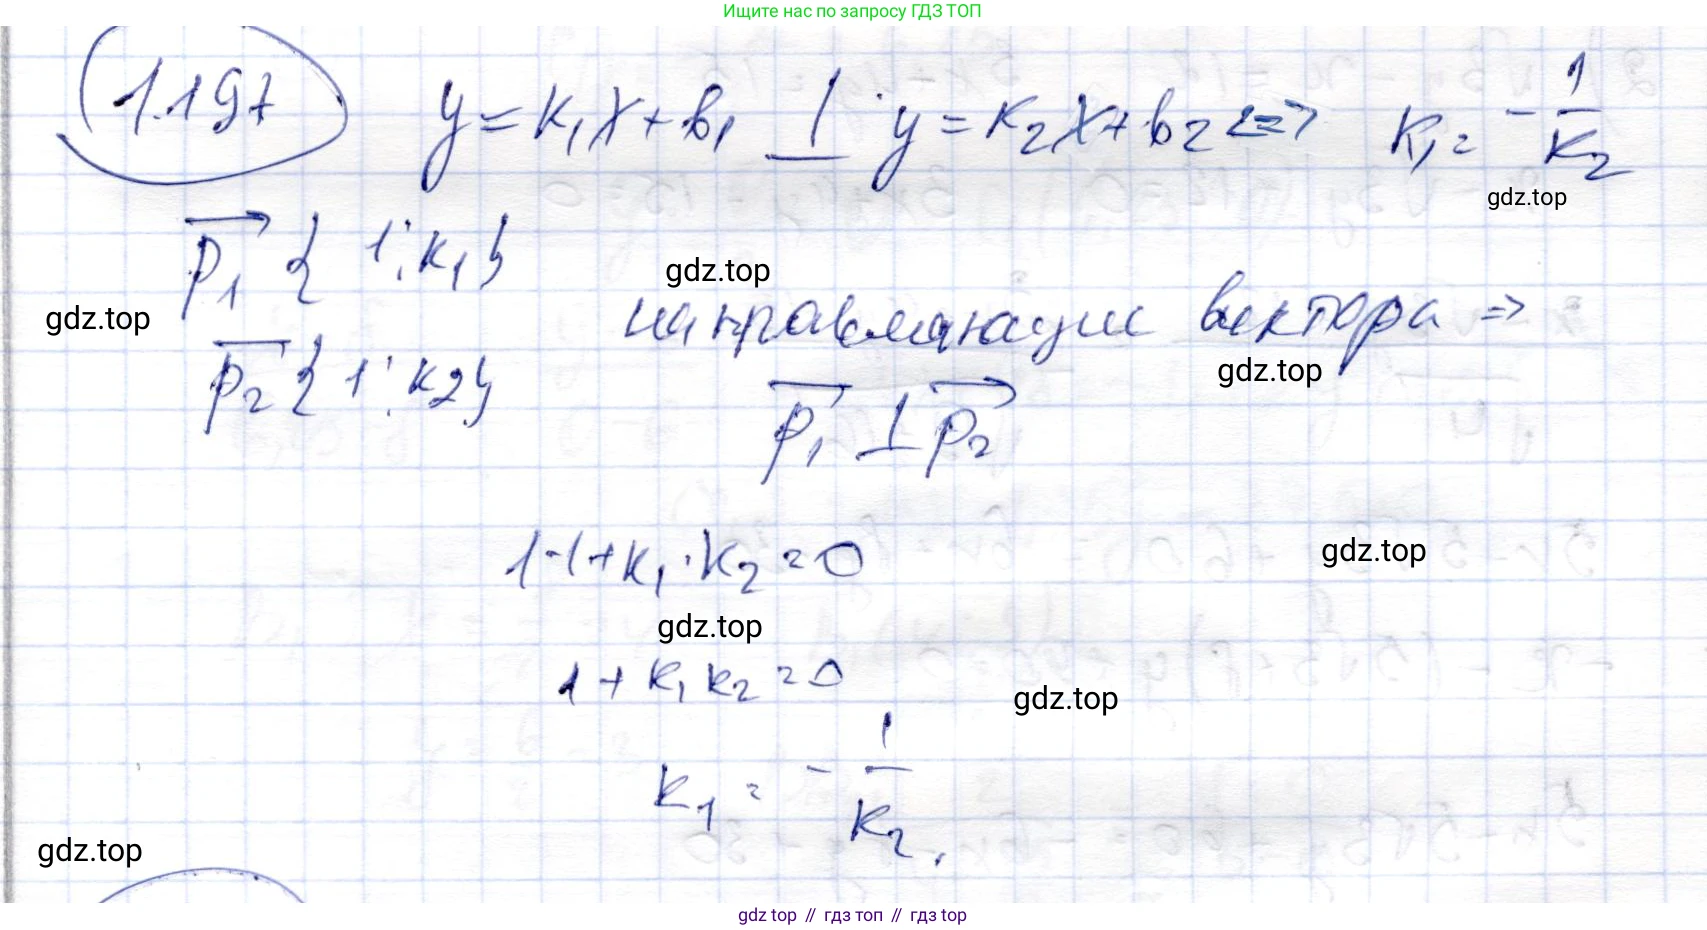 Ищите нас по запросу ГДЗ ТОП
1.197 y = k₁x + b₁ ⊥ y = k₂x + b₂ <=> k₁ = - 1/k₂
gdz.top
p₁ { 1; k₁}
gdz.top
gdz.top
направляющие вектора =>
p₂ { 1; k₂}
gdz.top
p₁ ⊥ p₂
1·1 + k₁·k₂ = 0
gdz.top
gdz.top
1 + k₁k₂ = 0
gdz.top
k₁ = - 1/k₂.
gdz.top
gdz top // гдз топ // gdz top